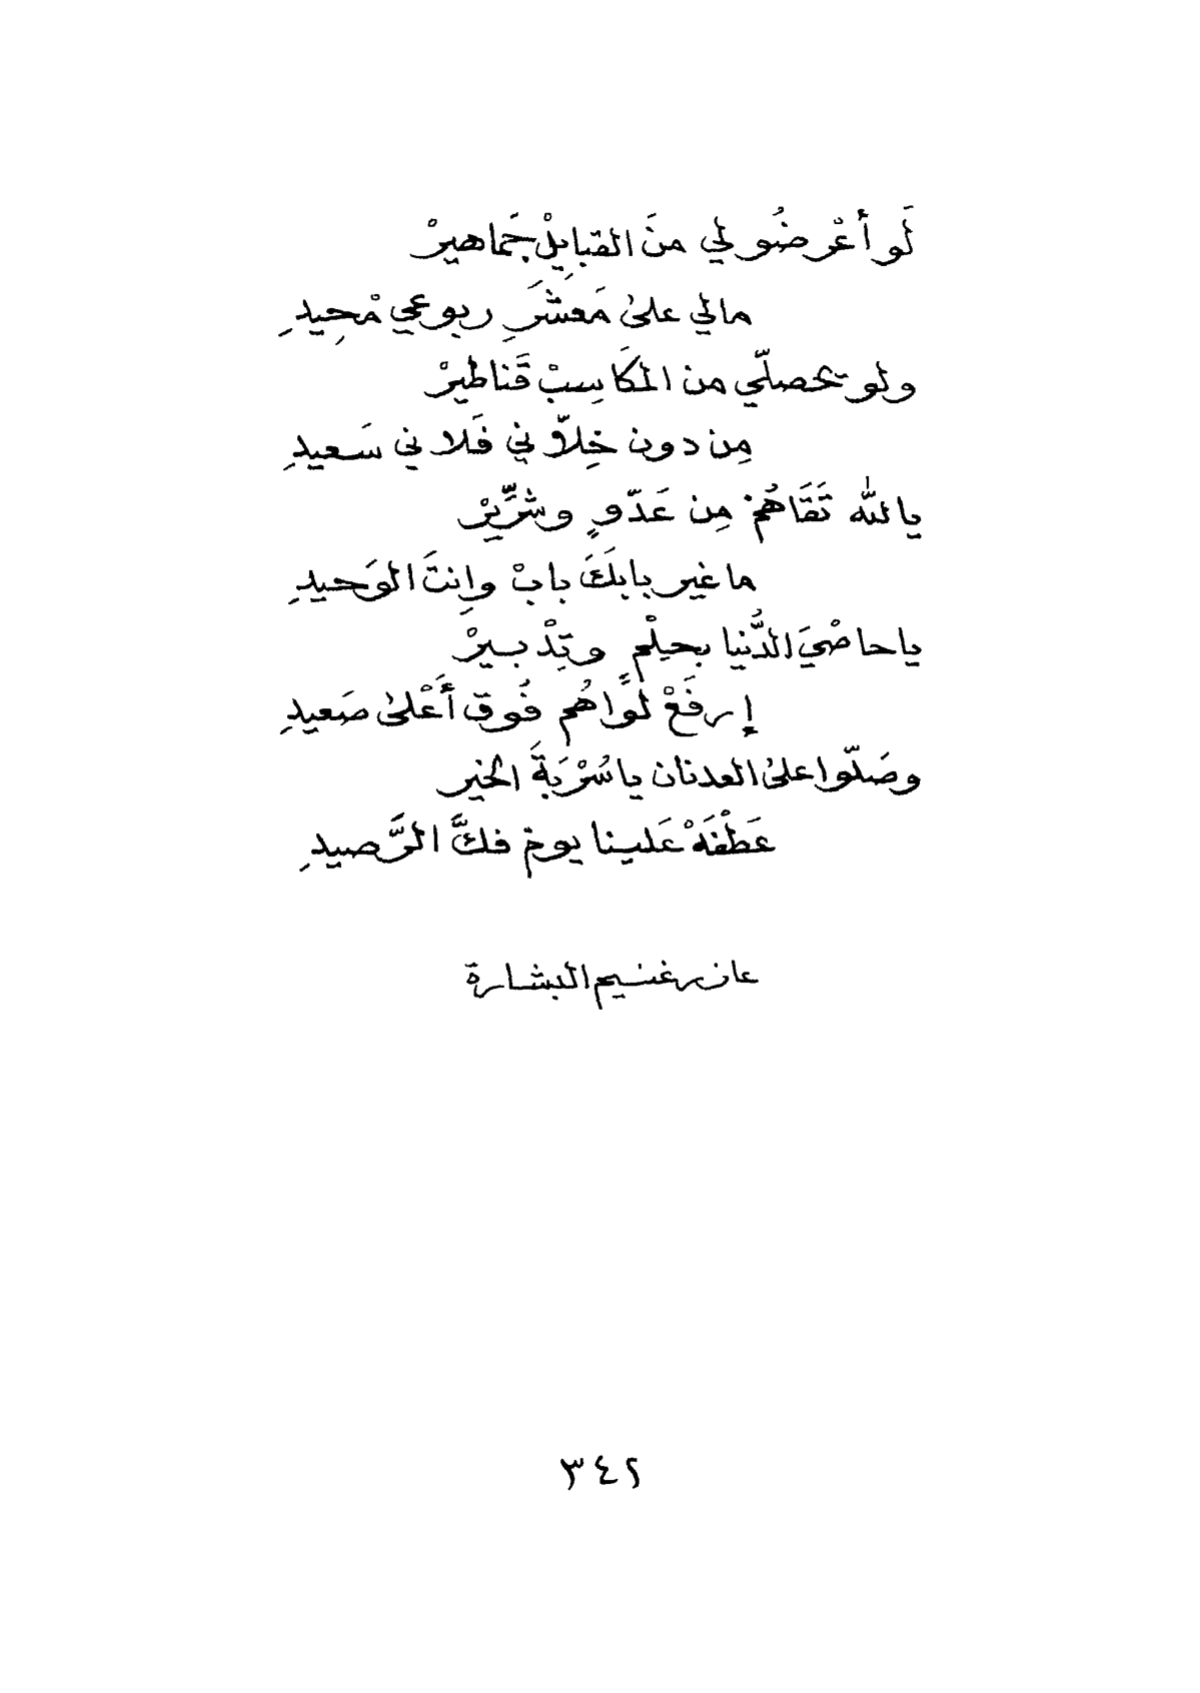 لَو أعْرضُو لي منَ القبايِلْ جَماهيرْ
مالي علىٰ مَعشَرِ ربوعي مْحِيدِ
ولو تحصلّي من المكَاسِبْ قَناطيرْ
مِن دون خِلاّني فَلاني سَعيدِ
يالله تَقَاهُمْ مِن عَدّوٍ وشرِّيرْ
ما غير بابكَ بابْ وإنتَ الوَحيدِ
يا حاضْيَ الدُّنيا بحيلْمٍ وتِدْبيرْ
إرفَعْ لوَاهُم فُوق أَعْلىٰ صَعيدِ
وصَلّوا علىٰ العدنان يا سُرْبَةَ الخير
عَطْفَهْ عَلينا يوم فكَّ الرَّصيدِ
عازر غنيم البشارة
٣٤٢